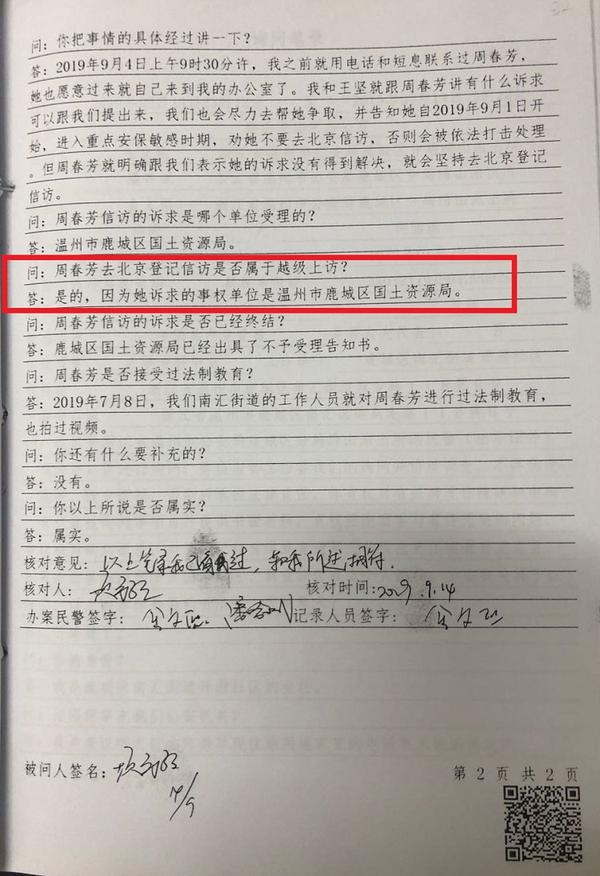 问：你把事情的具体经过讲一下？
答：2019年9月4日上午9时30分许，我之前就用电话和短息联系过周春芳，
她也愿意过来就自己来到我的办公室了。我和王坚就跟周春芳讲有什么诉求
可以跟我们提出来，我们也会尽力去帮她争取，并告知她自2019年9月1日开
始，进入重点安保敏感时期，劝她不要去北京信访，否则会被依法打击处理
。但周春芳就明确跟我们表示她的诉求没有得到解决，就会坚持去北京登记
信访。
问：周春芳信访的诉求是哪个单位受理的？
答：温州市鹿城区国土资源局。
问：周春芳去北京登记信访是否属于越级上访？
答：是的，因为她诉求的事权单位是温州市鹿城区国土资源局。
问：周春芳信访的诉求是否已经终结？
答：鹿城区国土资源局已经出具了不予受理告知书。
问：周春芳是否接受过法制教育？
答：2019年7月8日，我们南汇街道的工作人员就对周春芳进行过法制教育，
也拍过视频。
问：你还有什么要补充的？
答：没有。
问：你以上所说是否属实？
答：属实。
核对意见：以上笔录我已看过，和我所述相符.
核对人： 核对时间：2019.9.14
办案民警签字： 记录人员签字：
被问人签名：
第 2 页 共 2 页